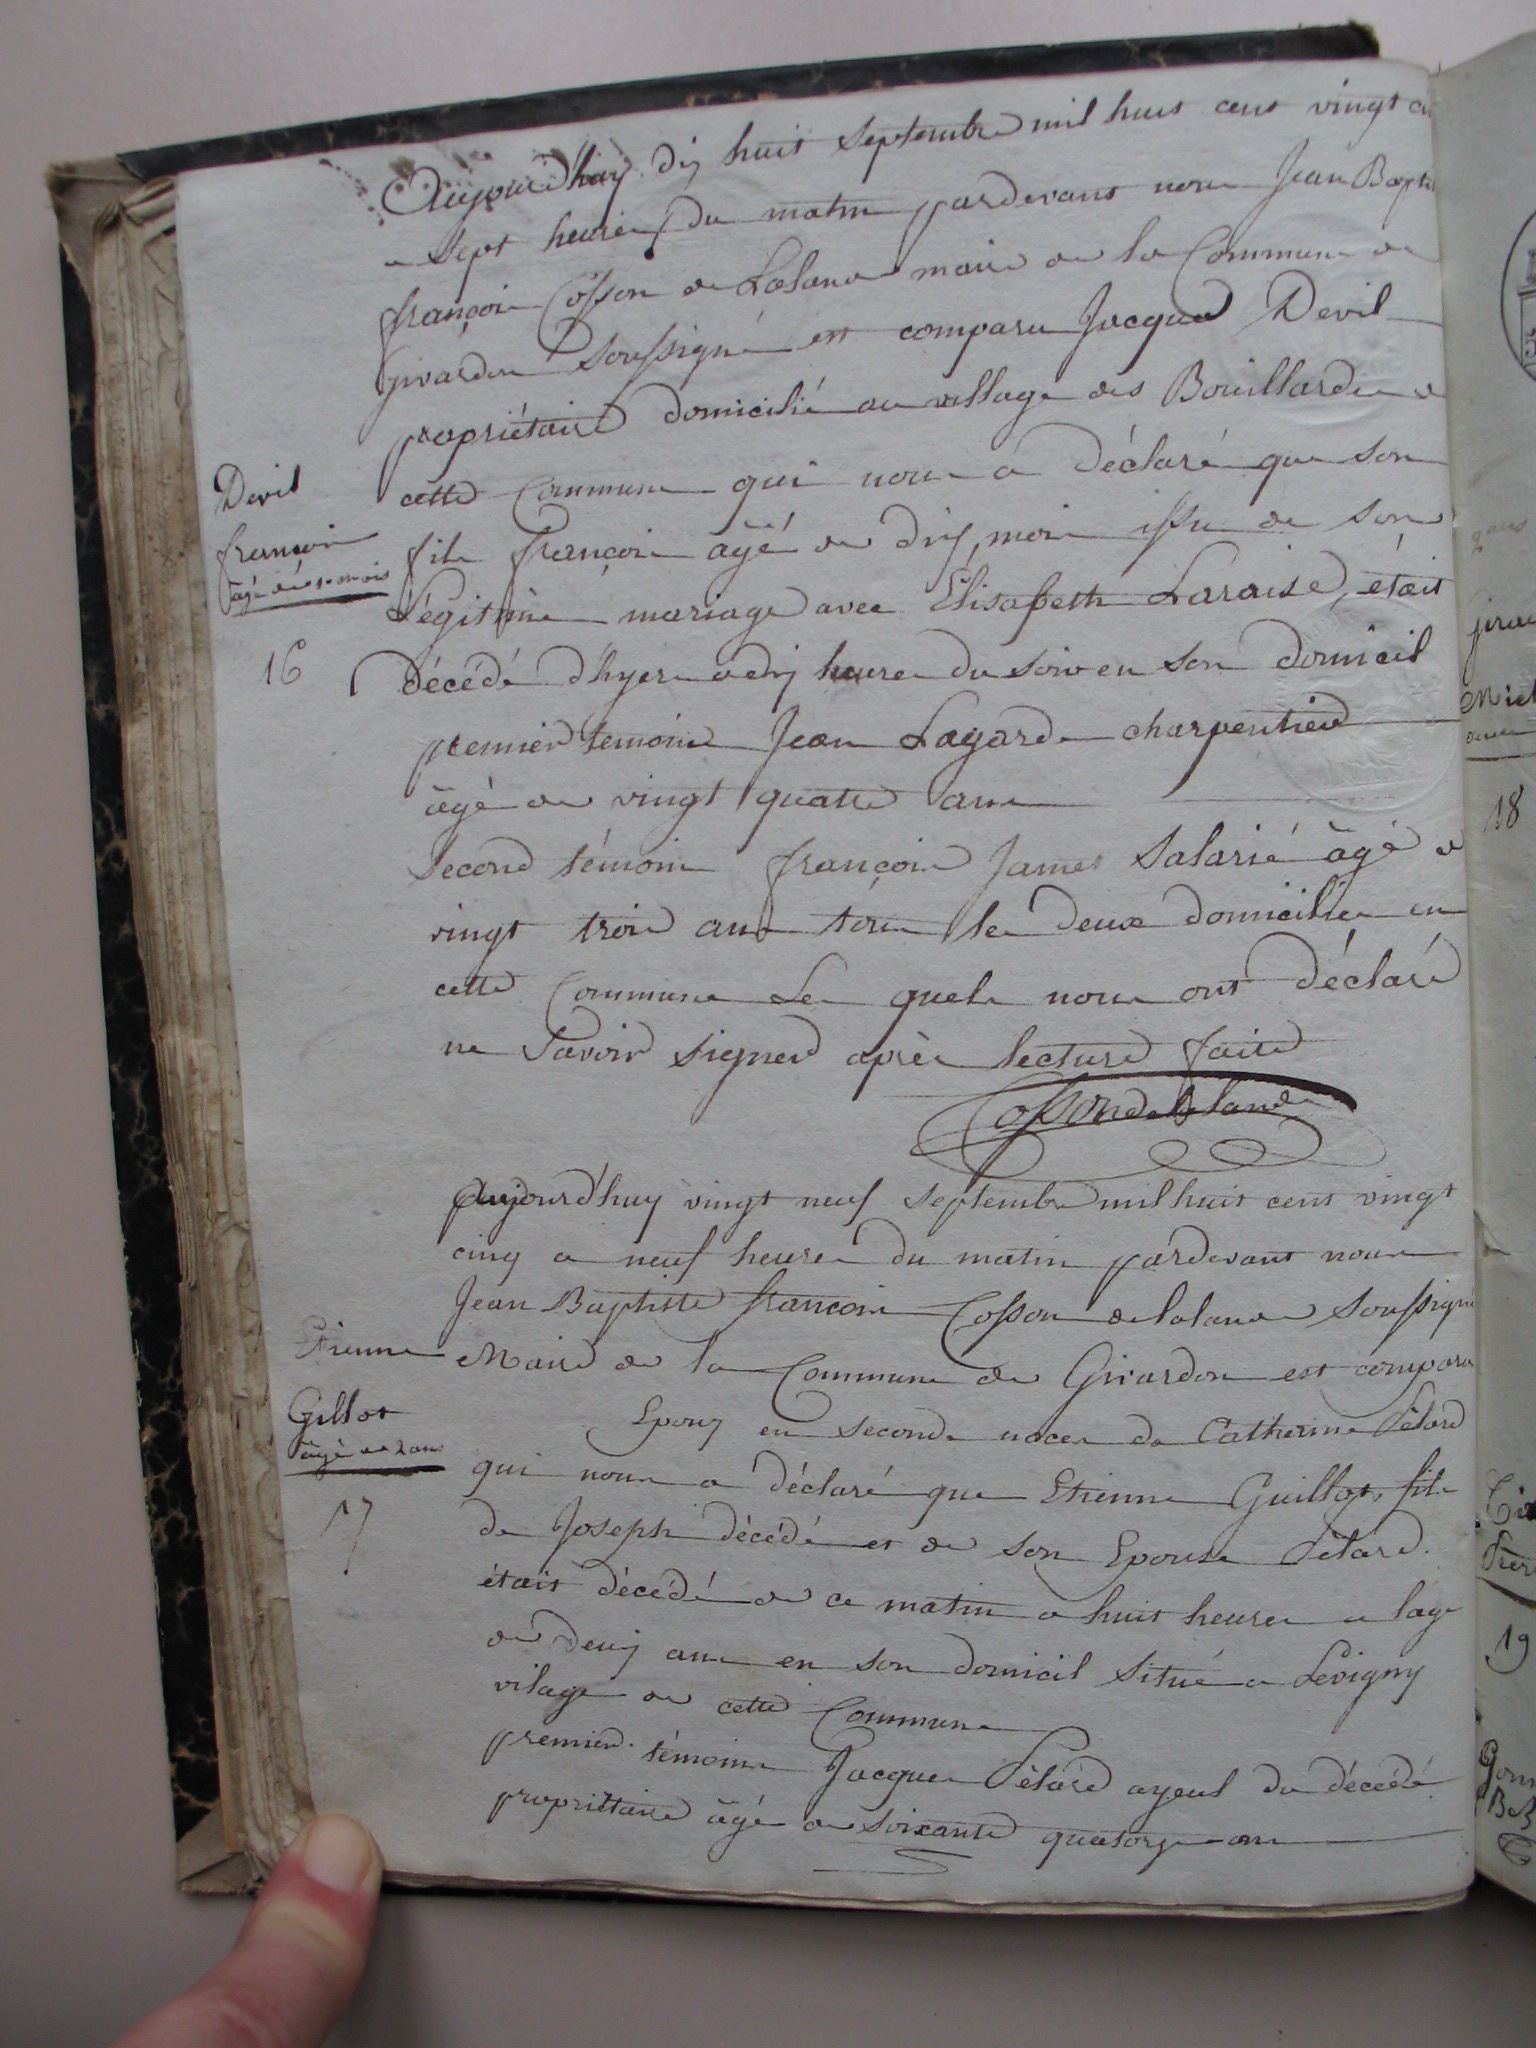 Aujourd'huy dix huit septembre mil huit cent vingt
a sept heures du matin pardevant nous Jean Bapti
françois Cosson de Lalande maire de la Commune de
Girardon soussigné est comparu Jacques Devil
propriétaire domicilié au village des Bouillards de
cette Commune qui nous a déclaré que son
Devil
fils françois âgé de dix mois issu de son
françois
âgé de 10 mois
Légitime mariage avec Élisabeth Laraise, était
16
décédé d'hyer a dix heures du soir en son domicil
premier temoins Jean Lagarde charpentier
âgé de vingt quatre ans
second témoins françois James salarié âgé de
vingt trois ans tous les deux domiciliés en
cette Commune Les quels nous ont déclaré
ne savoir signer après lecture faite
Cosson de Lalande
Aujourd'huy vingt neuf septembre mil huit cent vingt
cinq a neuf heures du matin pardevant nous
Jean Baptiste francois Cosson de lalande soussigné
Etienne
Maire de la Commune de Girardon est comparu
Gillot
âgé de 2 ans
Epoux en seconde noces de Catherine Pétard
qui nous a déclaré que Etienne Guillot fils
17
de Joseph décédé et de son Epouse Pétard.
était décédé de ce matin a huit heures a lage
de deux ans en son domicil situé a Lévigny
vilage de cette Commune
premier témoins Jacques Pétard ayeul du décédé
propriétaire âgé de soixante quatorze ans
18
19